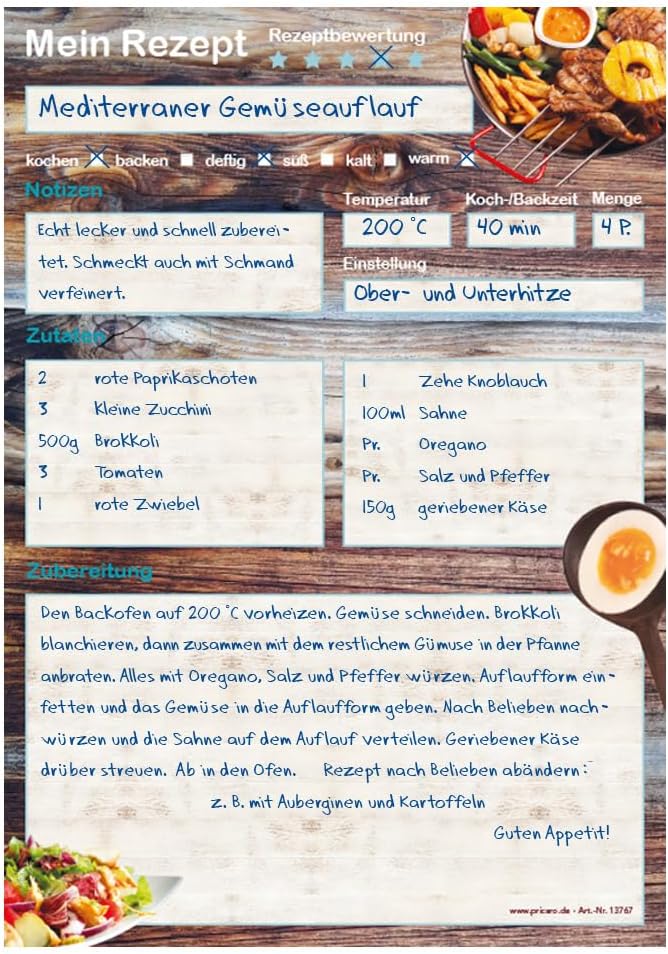 Mein Rezept
Rezeptbewertung
Mediterraner Gemüseauflauf
kochen backen deftig süß kalt warm
Notizen
Echt lecker und schnell zuberei-
tet. Schmeckt auch mit Schmand
verfeinert.
Temperatur Koch-/Backzeit Menge
200 °C 40 min 4 P.
Einstellung
Ober- und Unterhitze
Zutaten
2 rote Paprikaschoten
3 kleine Zucchini
500g Brokkoli
3 Tomaten
1 rote Zwiebel
1 Zehe Knoblauch
100ml Sahne
Pr. Oregano
Pr. Salz und Pfeffer
150g geriebener Käse
Zubereitung
Den Backofen auf 200 °C vorheizen. Gemüse schneiden. Brokkoli
blanchieren, dann zusammen mit dem restlichem Gümuse in der Pfanne
anbraten. Alles mit Oregano, Salz und Pfeffer würzen. Auflaufform ein-
fetten und das Gemüse in die Auflaufform geben. Nach Belieben nach-
würzen und die Sahne auf dem Auflauf verteilen. Geriebener Käse
drüber streuen. Ab in den Ofen. Rezept nach Belieben abändern:
z. B. mit Auberginen und Kartoffeln
Guten Appetit!
www.pricaro.de - Art.-Nr. 13767